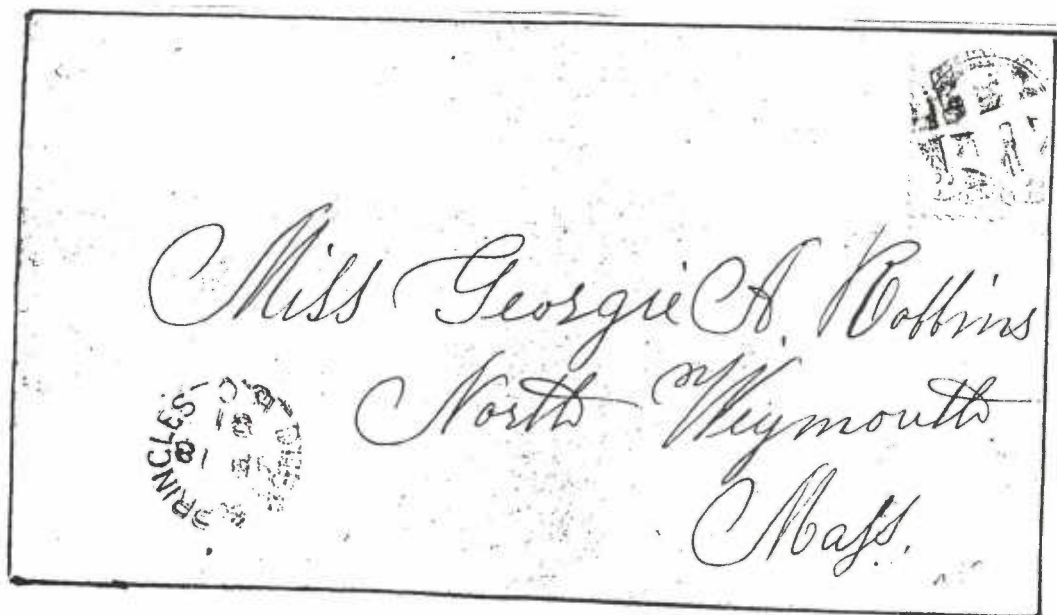 Miss Georgie A. Robbins
North Weymouth
Mass.